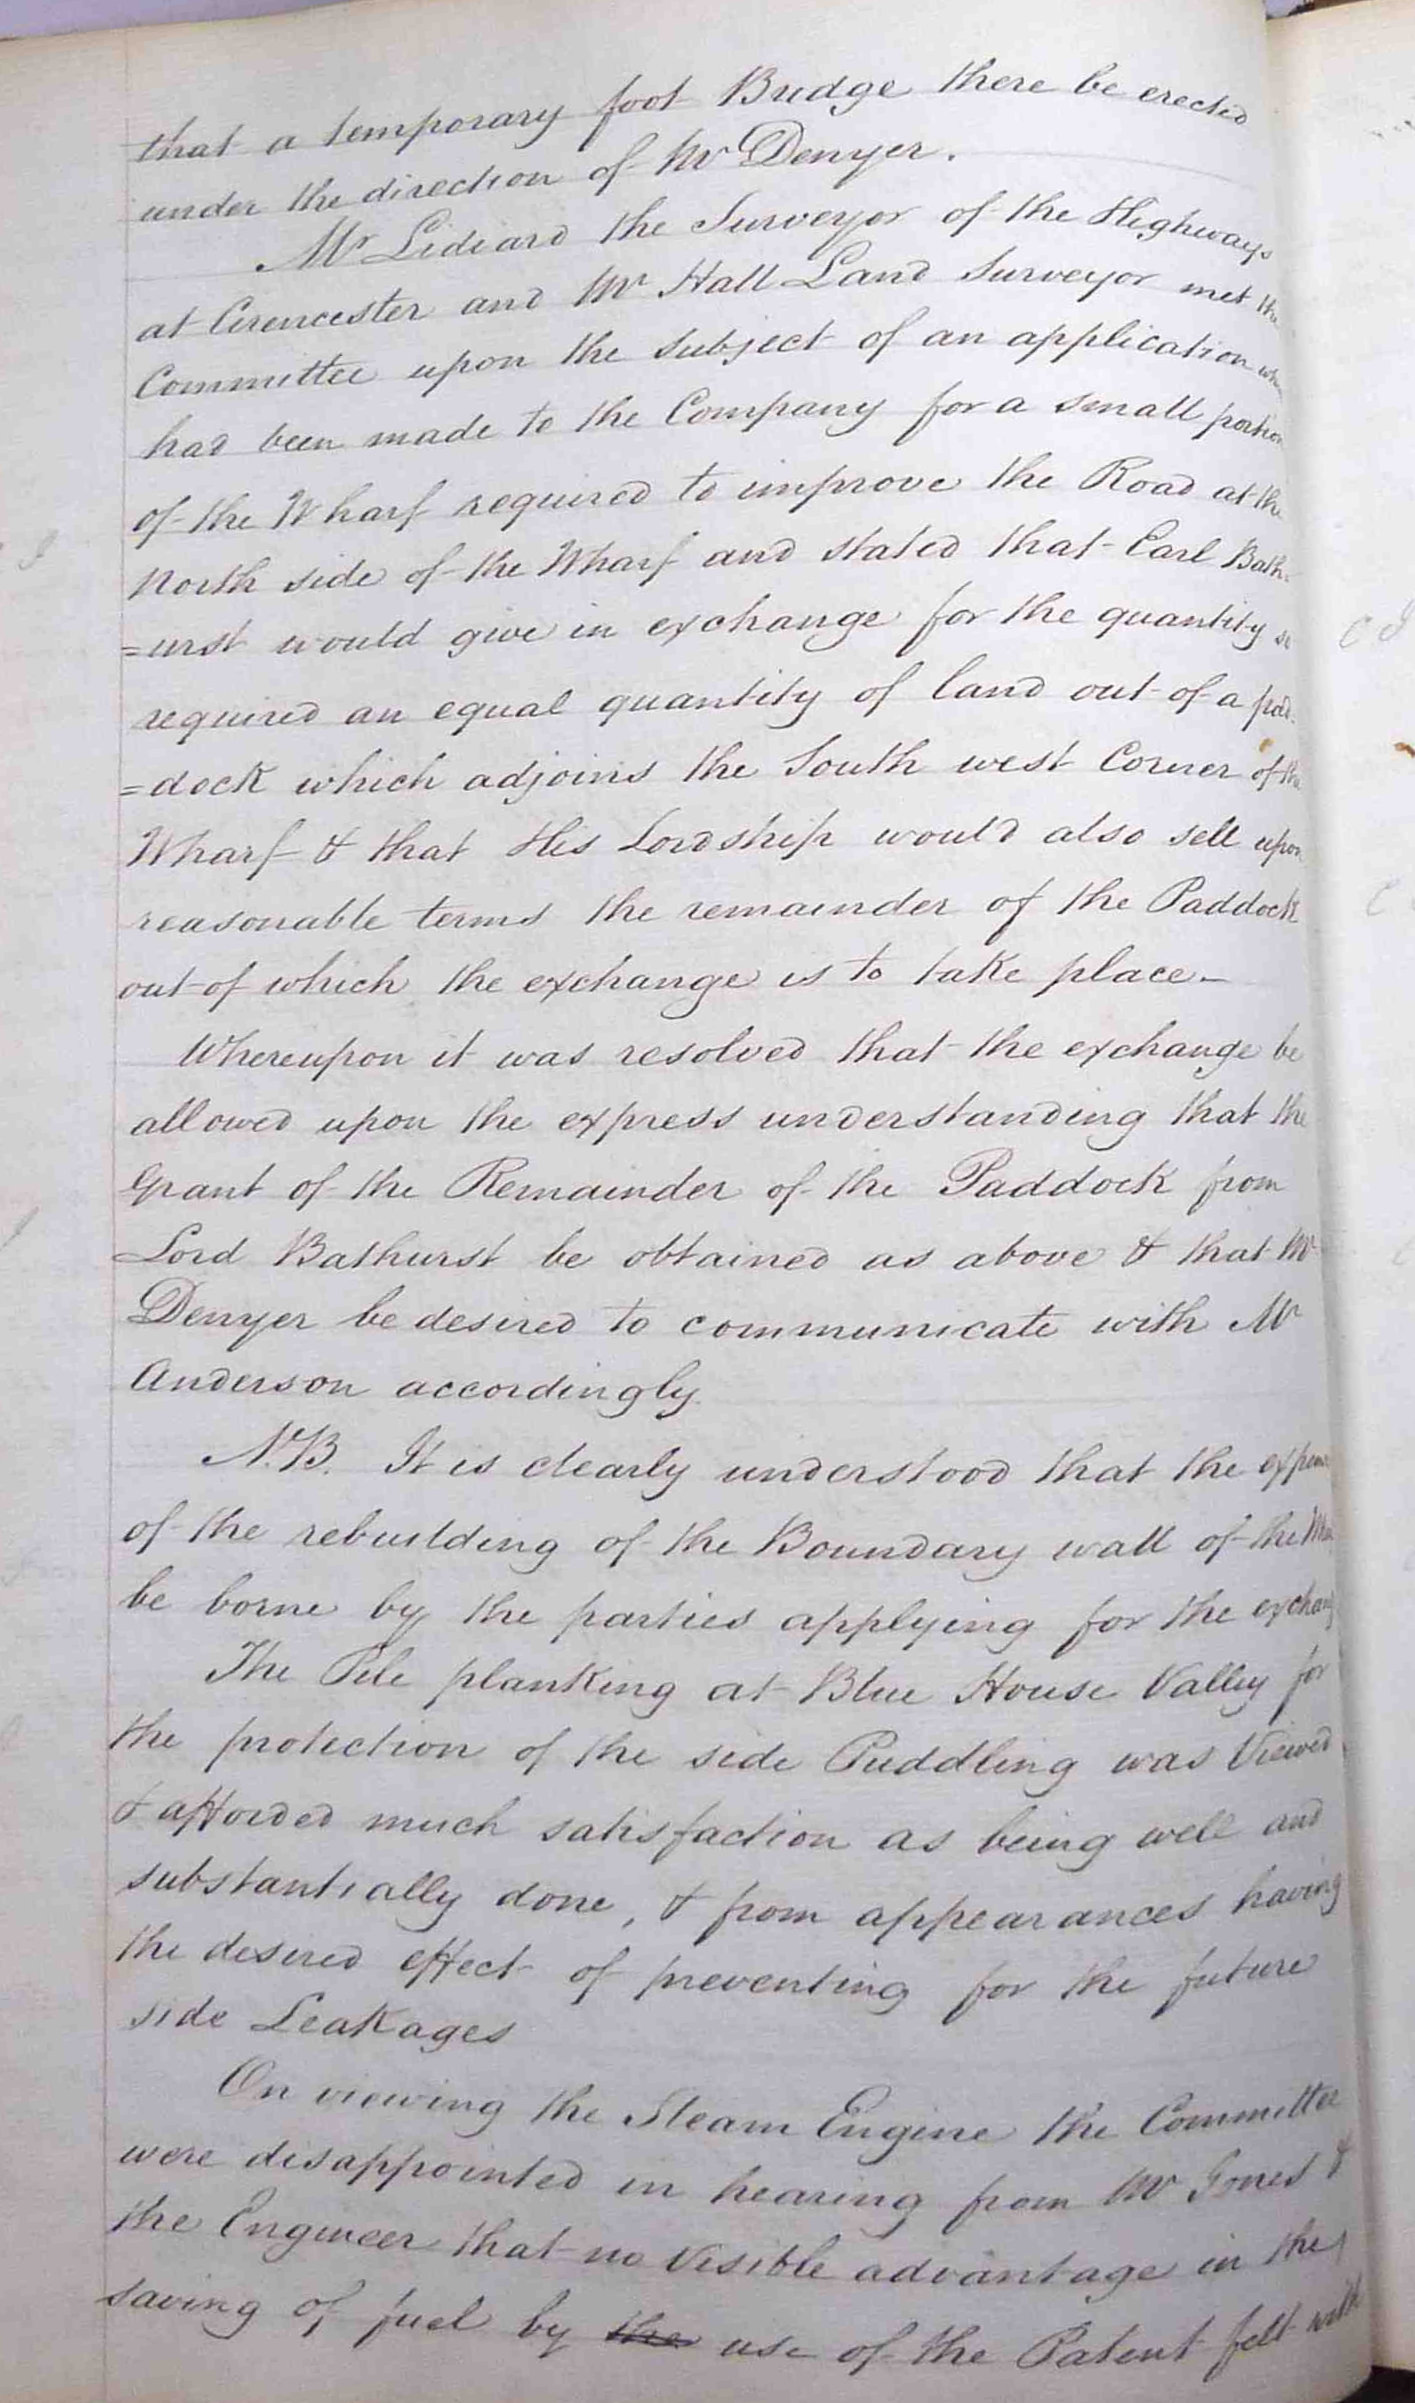 that a temporary foot Bridge there be erected
under the direction of Mr Denyer.
Mr Lidiard the Surveyor of the Highways
at Cirencester and Mr Hall Land Surveyor met the
Committee upon the subject of an application
has been made to the Company for a small portion
of the Wharf required to improve the Road at the
North side of the Wharf and stated that Earl Bath-
=urst would give in exchange for the quantity so
required an equal quantity of land out of a pad-
=dock which adjoins the South west Corner of the
Wharf & that His Lordship would also sell upon
reasonable terms the remainder of the Paddock
out of which the exchange is to take place_
Whereupon it was resolved that the exchange be
allowed upon the express understanding that the
Grant of the Remainder of the Paddock from
Lord Bathurst be obtained as above & that Mr
Denyer be desired to communicate with Mr
Anderson accordingly
N.B. It is clearly understood that the expense
of the rebuilding of the Boundary wall of the
be borne by the parties applying for the exchang
The Pile planking at Blue House Valley for
the protection of the side Puddling was Viewed
& afforded much satisfaction as being well and
substantially done, & from appearances having
the desired effect of preventing for the future
side Leakages
On viewing the Steam Engine the Committee
were disappointed in hearing from Mr Jones &
the Engineer that no visible advantage in the
saving of fuel by the use of the Patent felt with